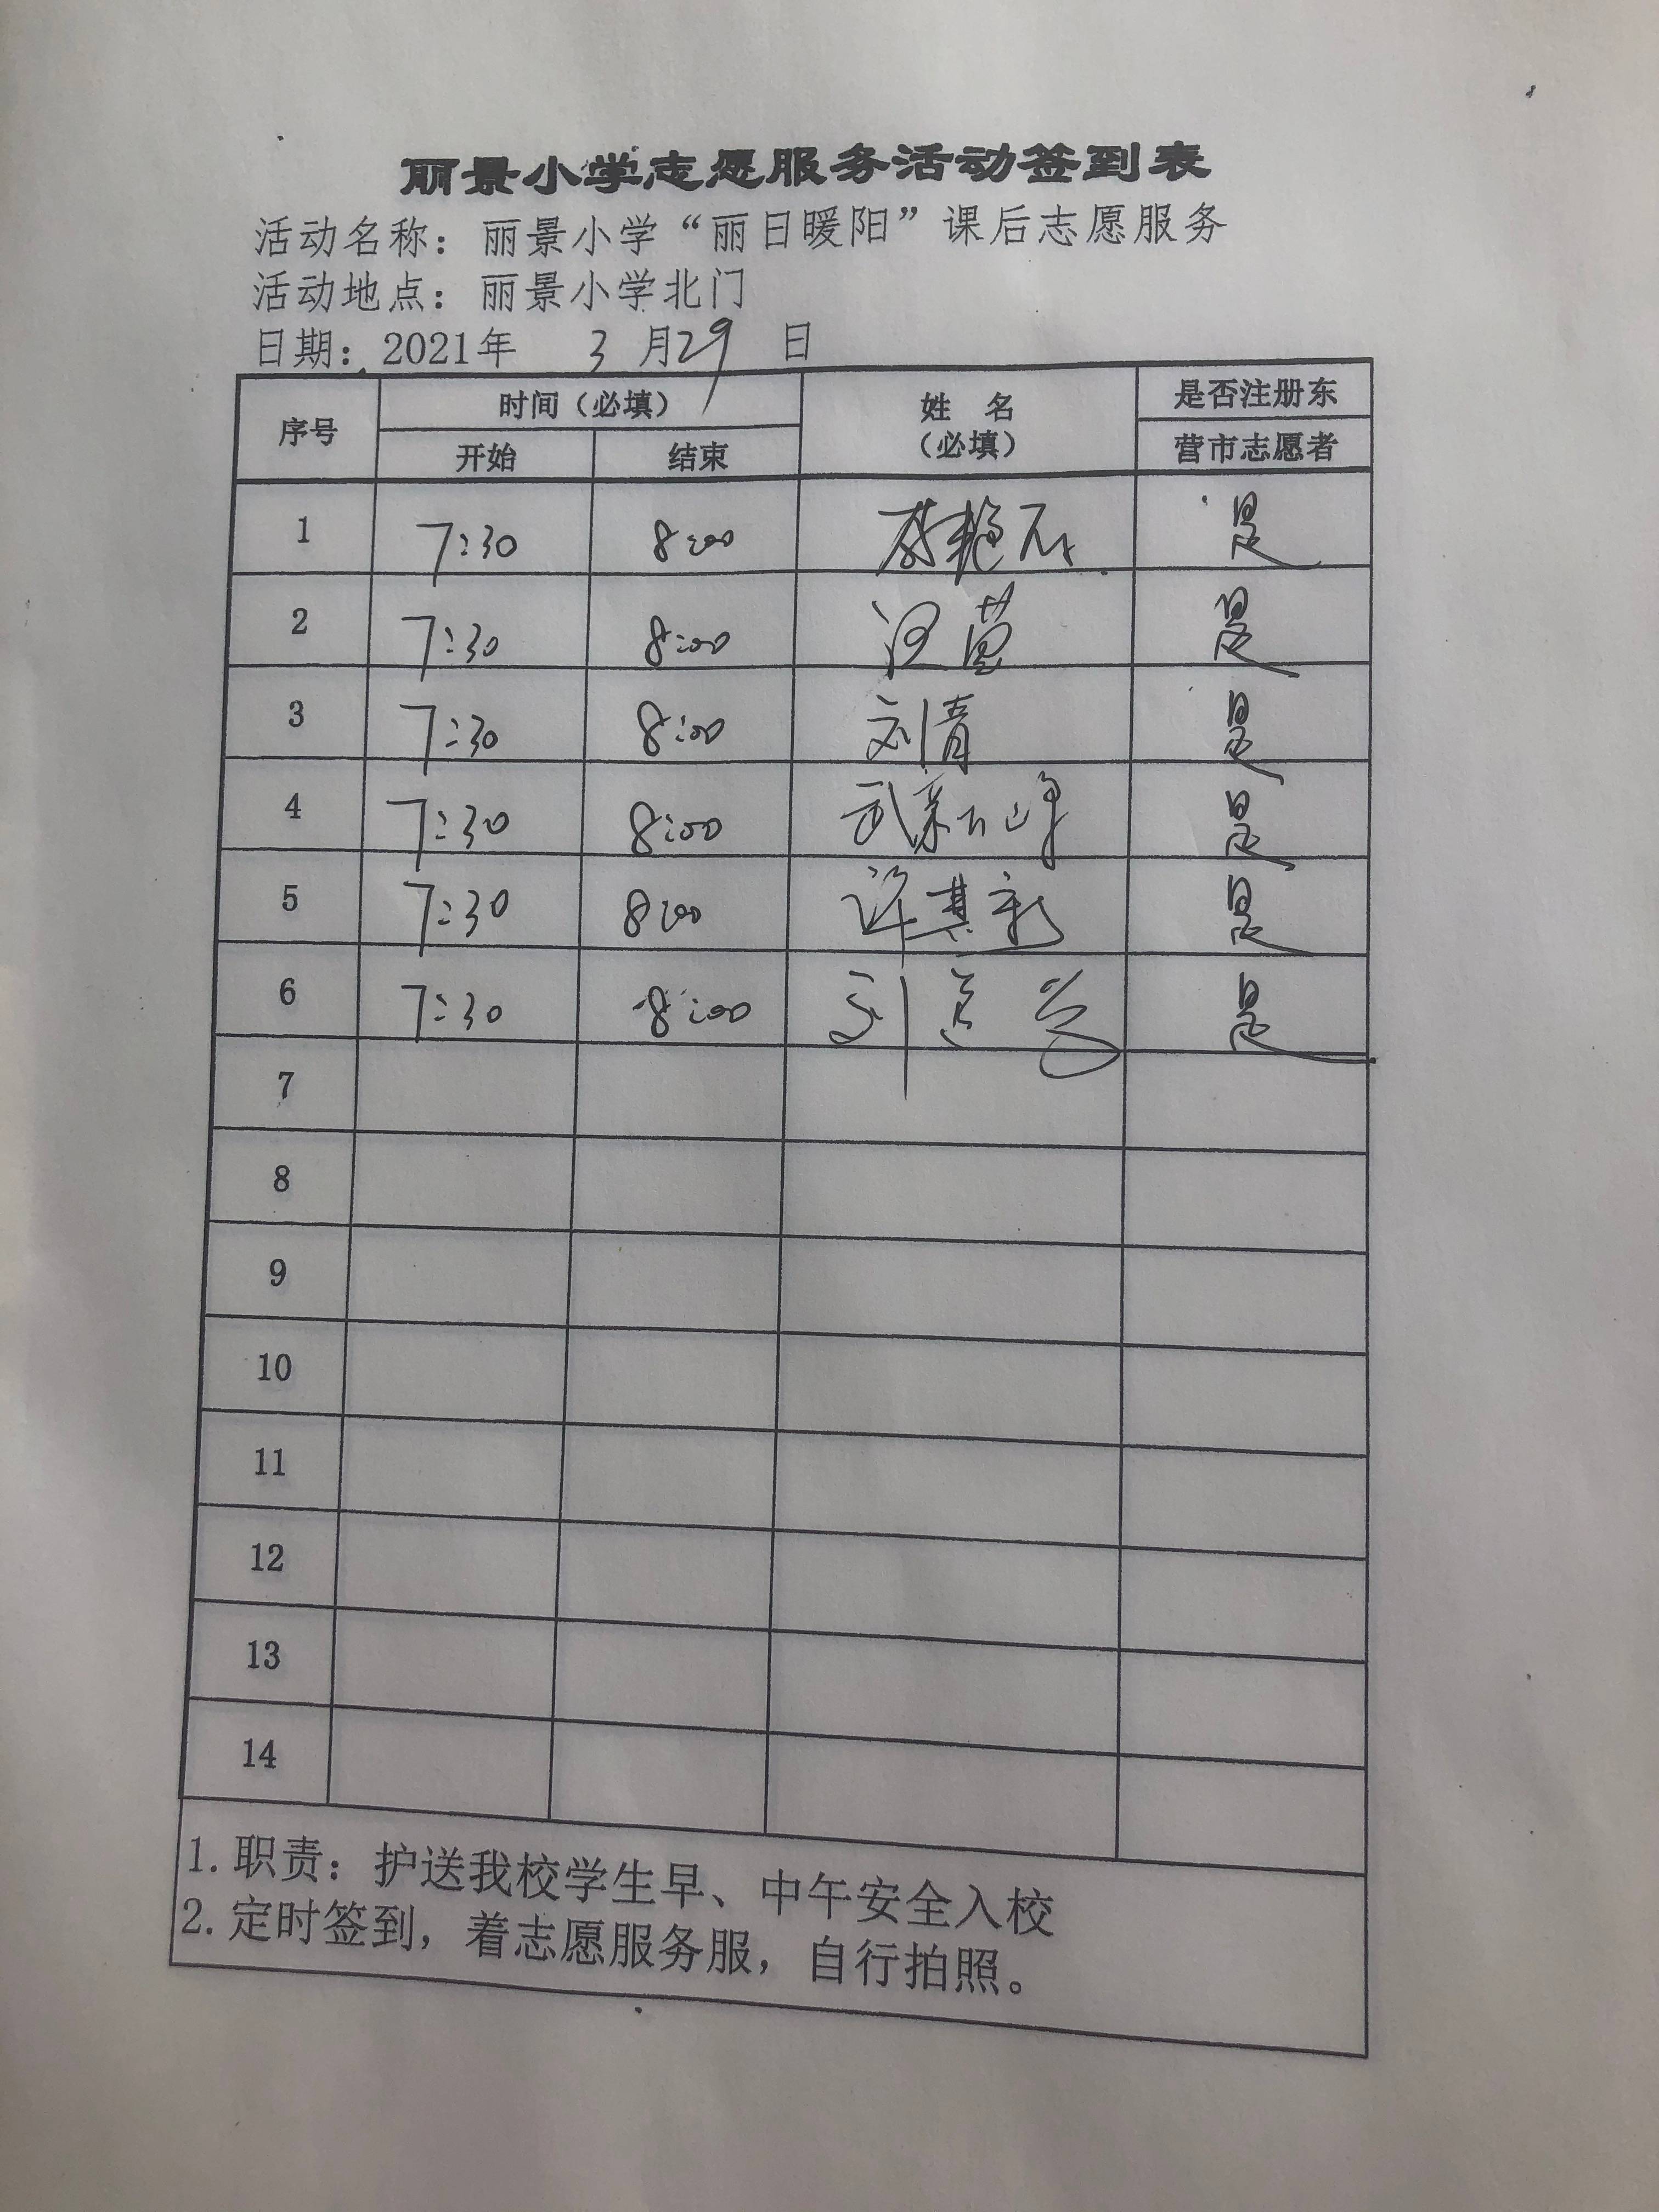 丽景小学志愿服务活动签到表
活动名称：丽景小学“丽日暖阳”课后志愿服务
活动地点：丽景小学北门
日期：2021年 3 月29 日
序号 时间（必填） 姓 名（必填） 是否注册东营市志愿者
开始 结束
1 7:30 8:00 是
2 7:30 8:00 是
3 7:30 8:00 刘青 是
4 7:30 8:00 是
5 7:30 8:00 许其新 是
6 7:30 8:00 刘 是
7
8
9
10
11
12
13
14
1.职责：护送我校学生早、中午安全入校
2.定时签到，着志愿服务服，自行拍照。